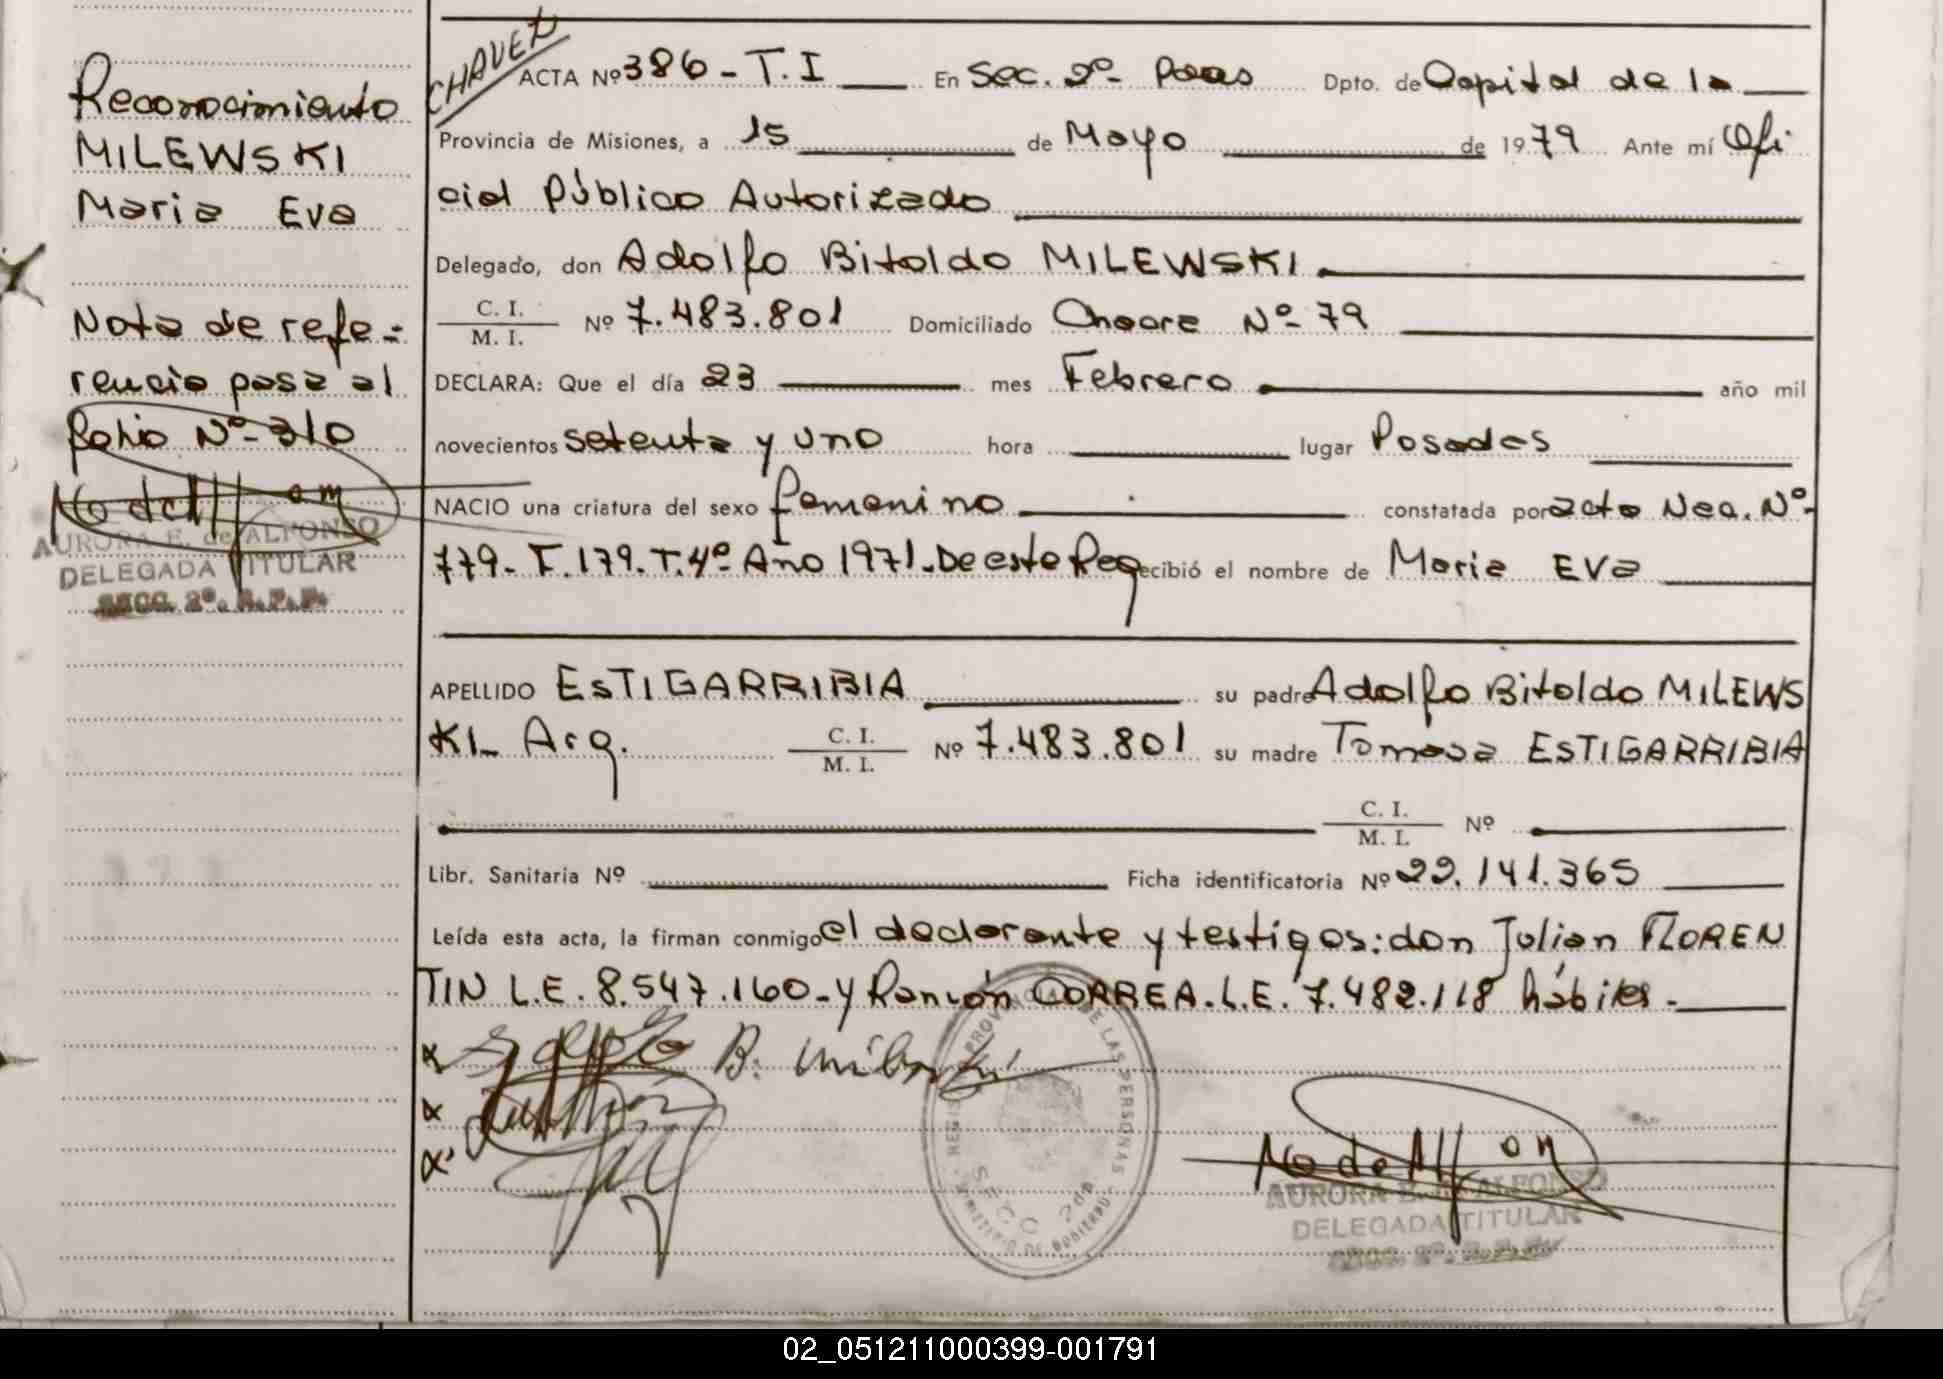 Reconocimiento
MILEWSKI
Maria Eva
Nota de refe-
rencia pasa al
folio Nº-310
AURORA E. de ALFONSO
DELEGADA TITULAR
SECC. 2º. R.P.P.
CHAVEZ
ACTA Nº 386 - T. I En Sec. 2º- Pdas Dpto. de Capital de la
Provincia de Misiones, a 15 de Mayo de 1979 Ante mí Ofi
cial Público Autorizado
Delegado, don Adolfo Bitoldo MILEWSKI
C. I.
M. I. Nº 7.483.801 Domiciliado Chacra Nº- 79
DECLARA: Que el día 23 mes Febrero año mil
novecientos setenta y uno hora lugar Posadas
NACIO una criatura del sexo femenino constatada por acta Nac. Nº-
779- F. 179. T. 4º- Año 1971. De este Reg ecibió el nombre de Maria Eva
APELLIDO ESTIGARRIBIA su padre Adolfo Bitoldo MILEWS
KI- Arg. C. I.
M. I. Nº 7.483.801 su madre Tomasa ESTIGARRIBIA
C. I.
M. I. Nº
Libr. Sanitaria Nº Ficha identificatoria Nº 22.141.365
Leída esta acta, la firman conmigo el declarante y testigos: don Julian FLOREN
TIN L.E. 8.547.160- y Ramón CORREA. L.E. 7.482.118 hábiles.-
REGISTRO PROVINCIAL DE LAS PERSONAS
SECC 2da.
MINISTERIO DE GOBIERNO
AURORA E. de ALFONSO
DELEGADA TITULAR
SECC. 2º. R.P.P.
02_051211000399-001791